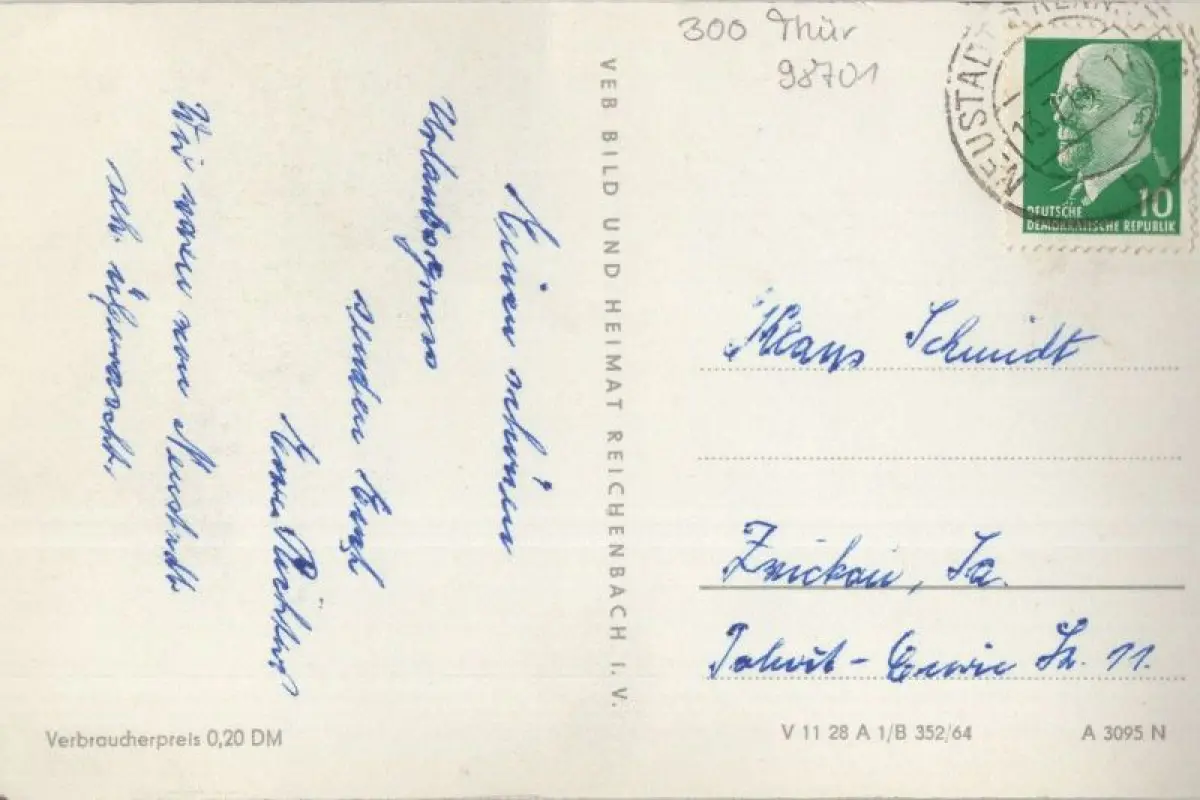 Einen schönen
Urlaubsgruss
senden Euch
Eure Richters
Wir waren von Neustadt
seh. überrascht.
VEB BILD UND HEIMAT REICHENBACH I. V.
300 Thür
98701
NEUSTADT
13.7.64
10
DEUTSCHE
DEMOKRATISCHE REPUBLIK
Klaus Schmidt
Zwickau, Sa.
Str. 11.
Verbraucherpreis 0,20 DM
V 11 28 A 1/B 352/64
A 3095 N